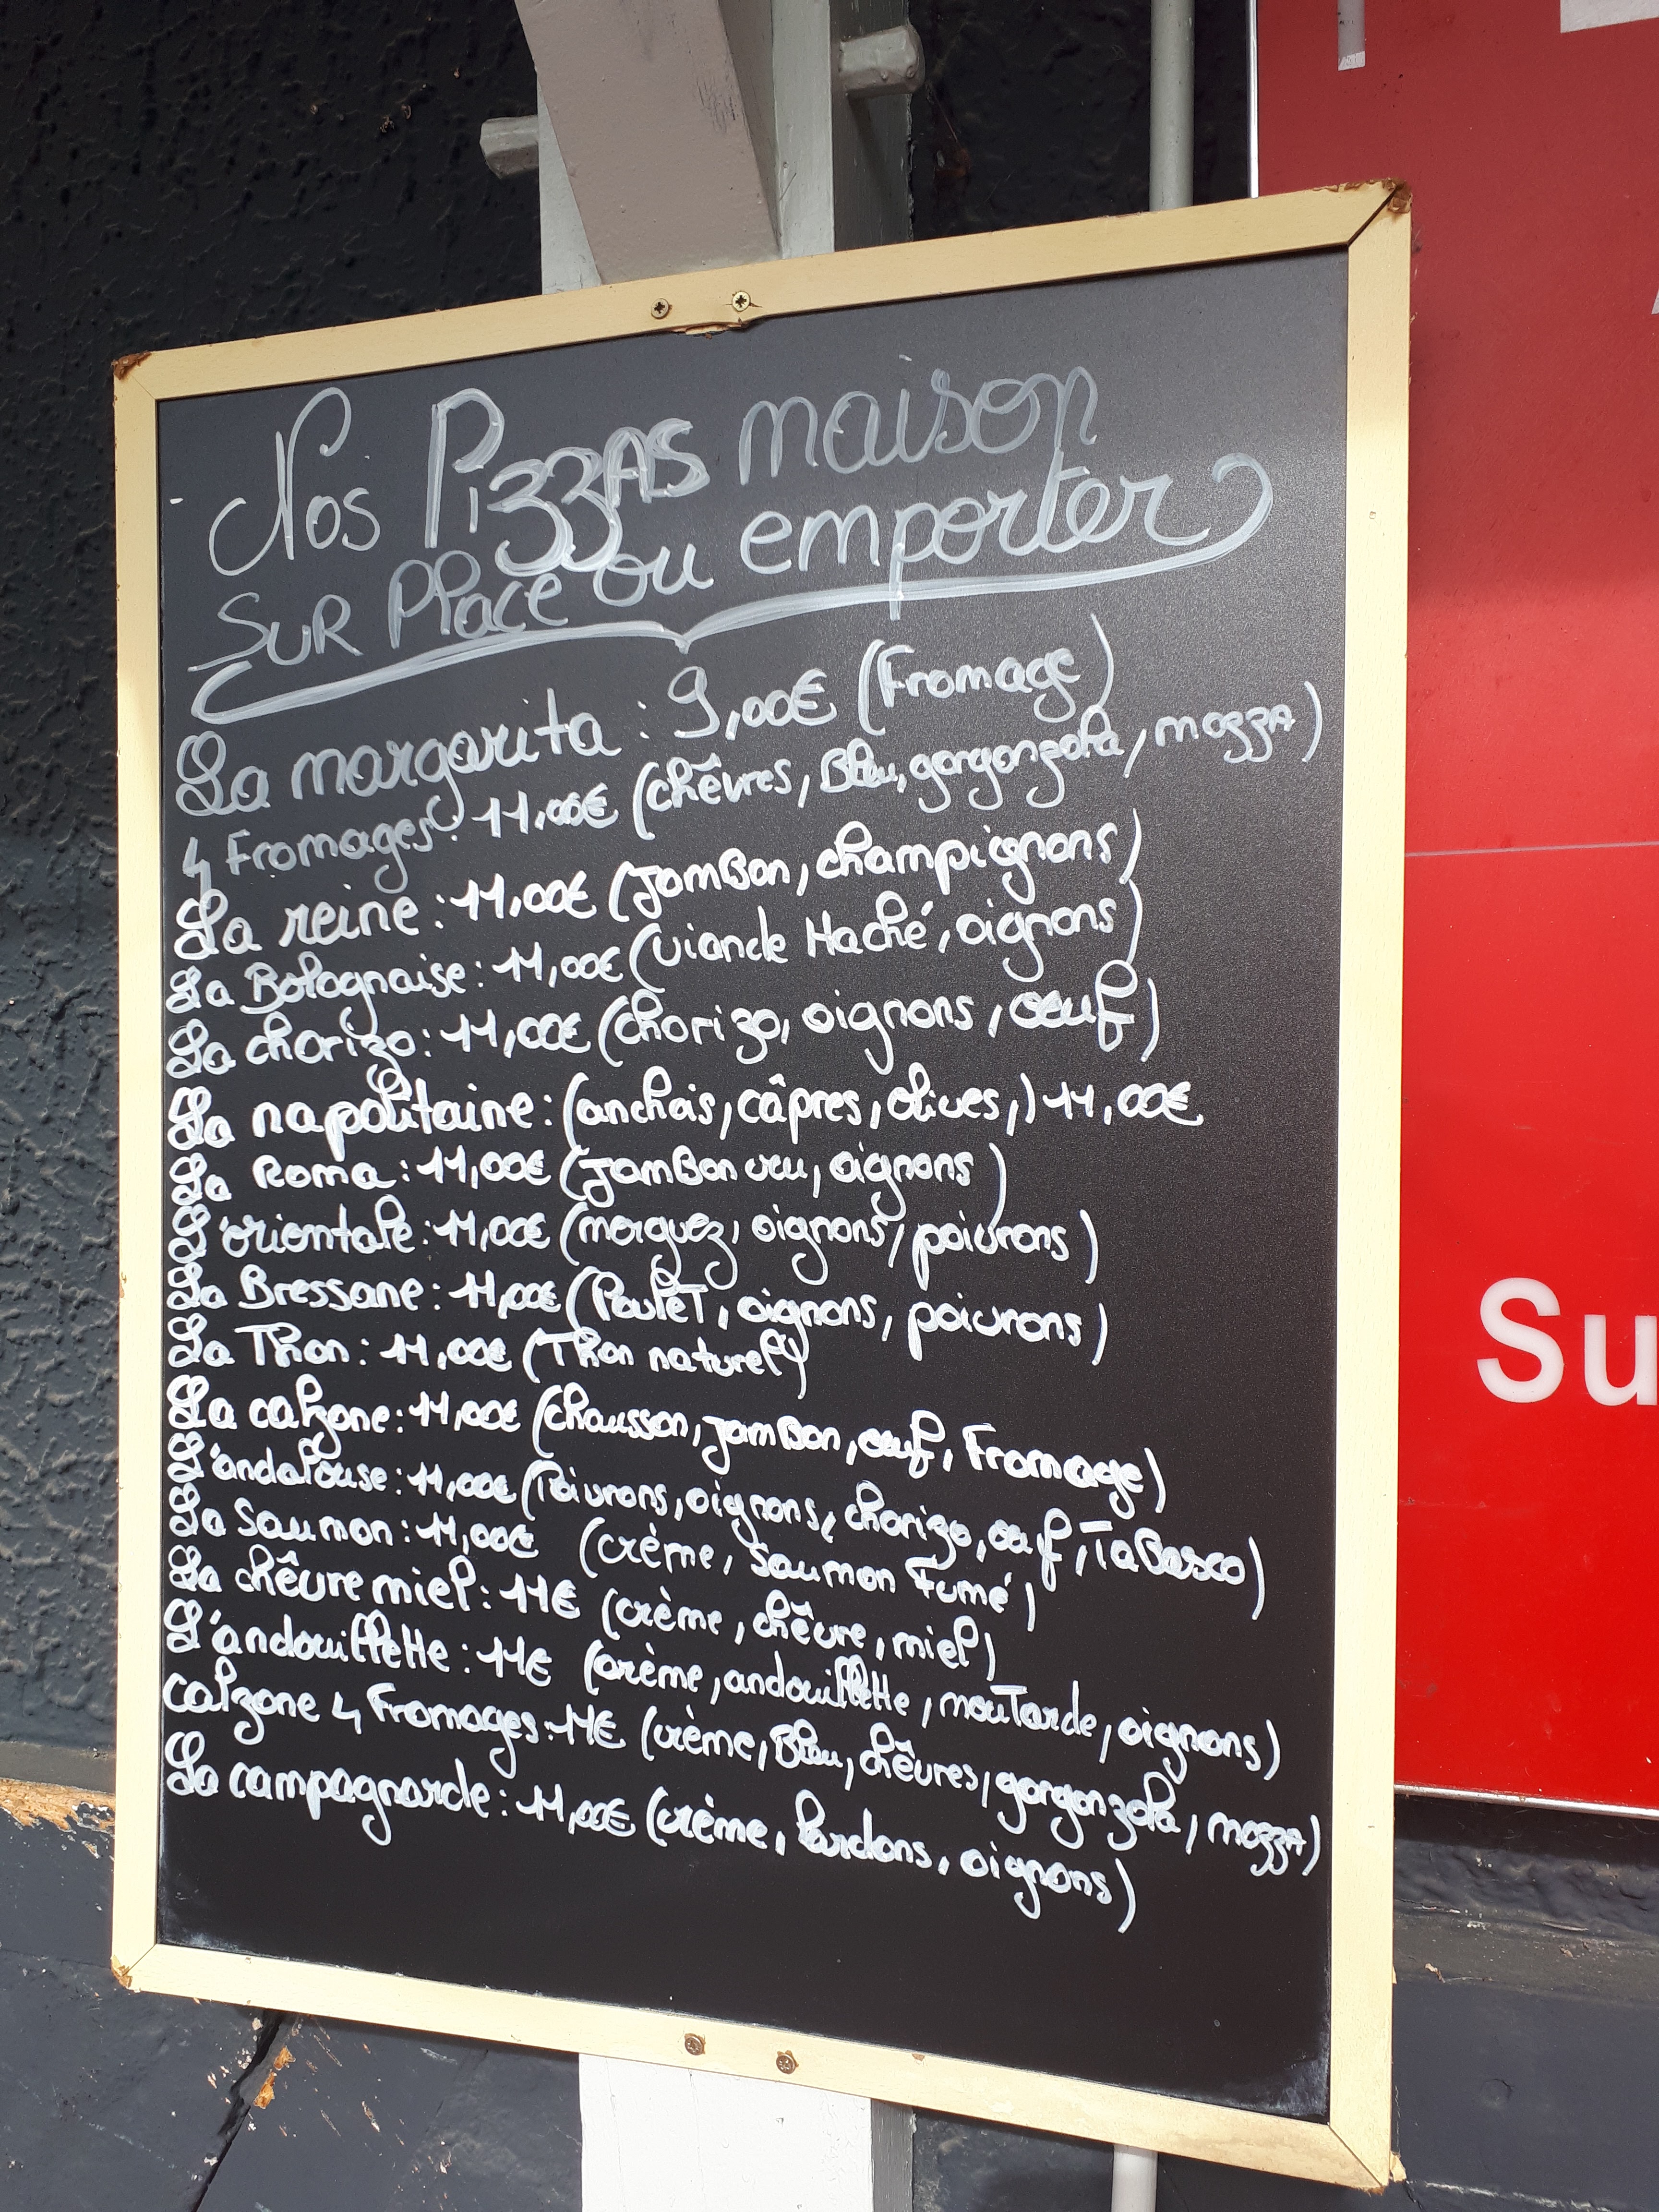 Nos Pizzas maison
SUR Place ou emporter
La margarita : 9,00€ (Fromage)
4 Fromages : 11,00€ (chêvres, Bleu, gorgonzola, mozza)
La reine : 11,00€ (JamBon, champignons)
La Bolognaise : 11,00€ (viande Haché, oignons)
La chorizo : 11,00€ (chorizo, oignons, oeuf)
La napolitaine : (anchois, câpres, olives,) 11,00€
La Roma : 11,00€ (JamBon cru, oignons)
L'orientale : 11,00€ (merguez, oignons, poivrons)
La Bressane : 11,00€ (PouleT, oignons, poivrons)
La Thon : 11,00€ (Thon naturel)
La calzone : 11,00€ (chausson, jamBon, oeuf, Fromage)
L'andalouse : 11,00€ (Poivrons, oignons, chorizo, oeuf, TaBasco)
La Saumon : 11,00€ (crème, Saumon Fumé)
La chêvre miel : 11€ (crème, chêvre, miel)
L'andouillette : 11€ (crème, andouillette, mouTarde, oignons)
calzone 4 Fromages : 11€ (crème, Bleu, chêvres, gorgonzola, mozza)
La campagnarde : 11,00€ (crème, lardons, oignons)
Su